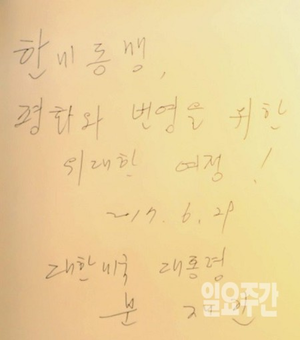 한미동맹,
평화와 번영을 위한
위대한 여정!
2017.6.29
대한미국 대통령
문재인
일요주간